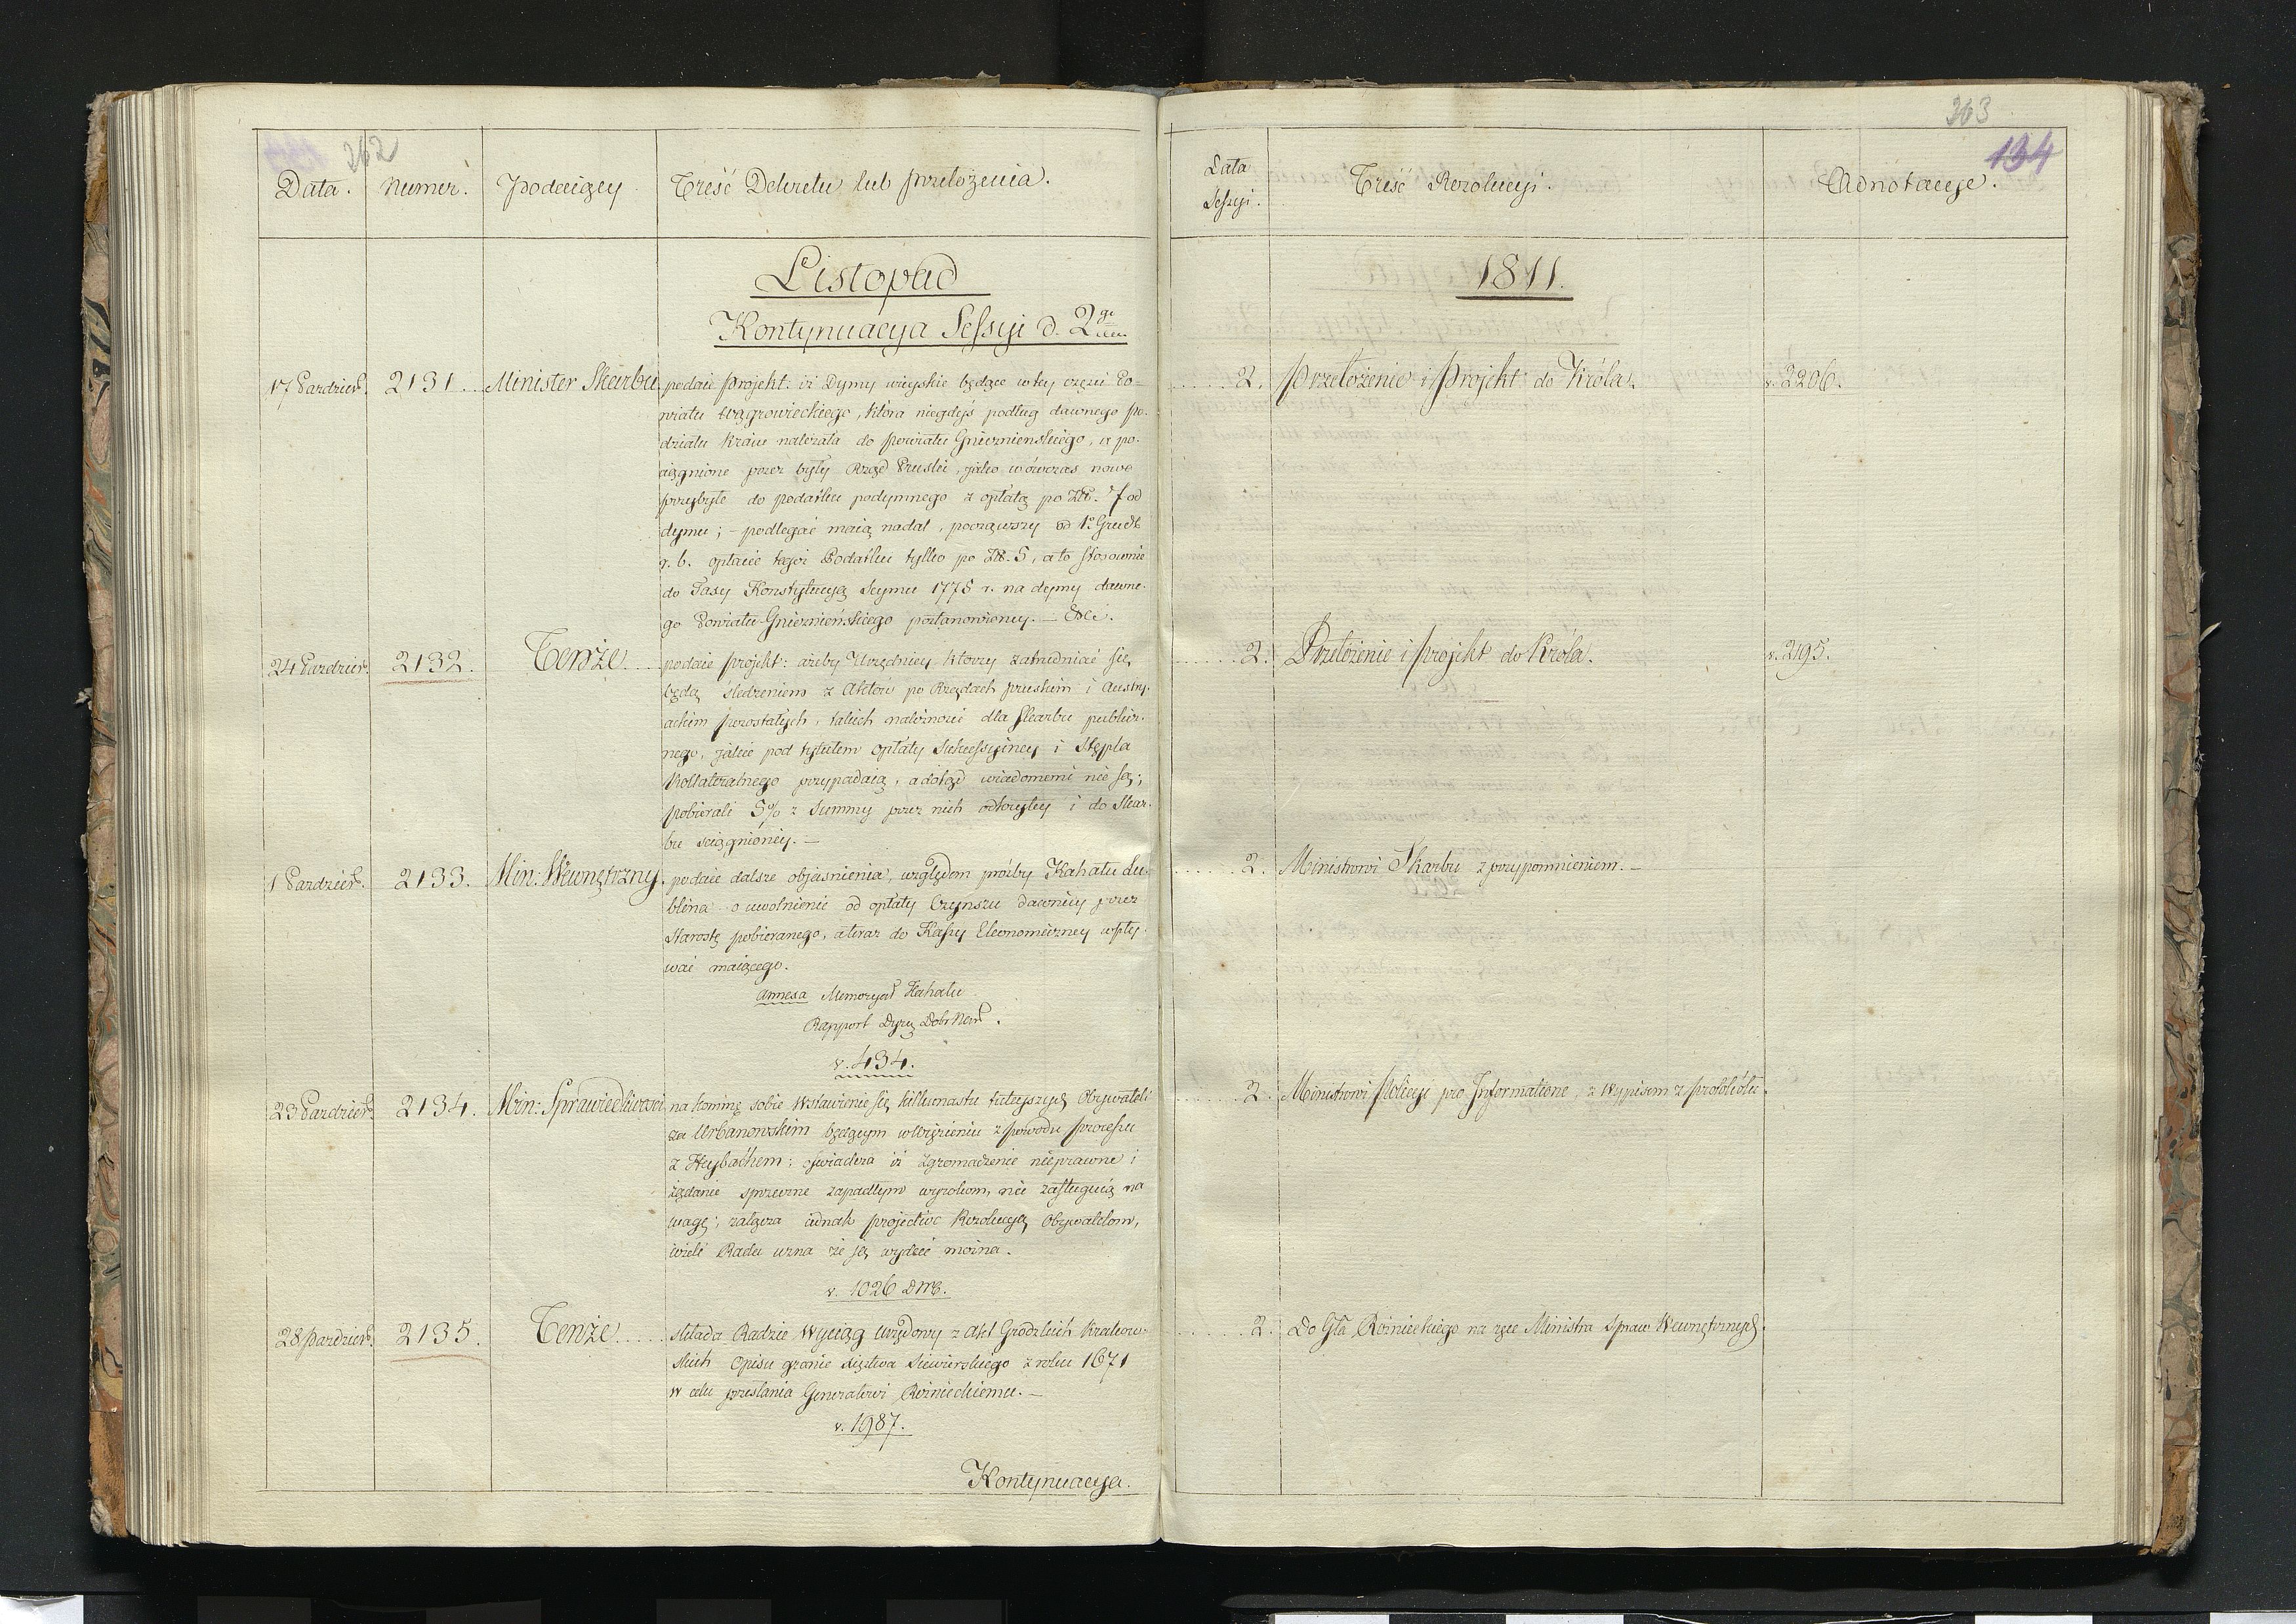 262
Data. Numer. Podaiący Treść Dekretu lub przełożenia.
Listopad
Kontynuacya Sessyi d. 2go
17 Paździer. 2131. Minister Skarbu podaie projekt: iż Dymy wieyskie będące w tey części Po=
wiatu Wągrowieckiego, która niegdyś podług dawnego po-
działu kraiu należała do powiatu Gnieznienskiego, a po-
ciągnione przez były Rząd Pruski, jako wówczas nowo
przybyłe do podatku podymnego z opłatą po Złł. 7 od
dymu; – podlegać maią nadal, począwszy od 1o Grud.
r. b. opłacie tegoż Podatku tylko po Zł. 5, a to stosownie
do Taxy Konstytucyą Seymu 1775 r. na dymy dawne-
go Powiatu Gnieznieńskiego postanowioney. –
24 Paździer. 2132. Tenże podaie projekt: ażeby Urzędnicy którzy zatrudniać się
będą śledzeniem z Aktów po Rządach pruskim i Austry-
ackim pozostałych, takich należności dla Skarbu publicz-
nego, jakie pod tytułem opłaty Sukcessyiney i Stępla
Kollateralnego przypadaią, a dotąd wiadomemi nie są;
pobierali 5% z Summy przez nich odkrytey i do Skar-
bu sciągnioney. –
1 Paździer. 2133. Min: Wewnętrzny. podaie dalsze objaśnienia, względem prozby Kahału Lu-
blina o uwolnienie od opłaty Czynszu dawniey przez
Starostę pobieranego, a teraz do Kassy Ekonomiczney wpły-
wać maiącego.
Annexa Memoryał Kahału
Rapport Dyrz Dobr Nar.
v. 434.
23 Paździer. 2134. Min: Sprawiedliwości na komunię sobie Wstawienie się kilkunastu tuteyszych Obywateli
za Urbanowskim będącym w Więzieniu z powodu processu
z Heybachem: oświadcza iż zgromadzenie nieprawne i
żądanie sprzeczne zapadłym wyrokom, nie zasługuią na
uwagę; załącza jednak projective Rezolucyą Obywatelom,
jeżeli Rada uzna że ją wydać można.
v. 1026 DMB.
28 Paździer. 2135. Tenże składa Radzie Wyciąg urzędowy z Akt Grodzkich Krakow-
skich Opisu granic Xięztwa Siewierskiego z roku 1671
w celu przesłania Generałowi Rożnieckiemu. –
v. 1987.
Kontynuacya.
263
134
Data
Sessyi. Treść Rezolucyi. Adnotacye.
1811.
2. Przełożenie i Projekt do Króla. v. 2206.
2. Przełożenie i projekt do Króla. v. 2195.
2. Ministrowi Skarbu z przypomnieniem. –
2. Ministrowi Policyi pro Informatione, z Wypisem z protokółu.
2. Do Gła Rożnieckiego na ręce Ministra Spraw Wewnętrznych.